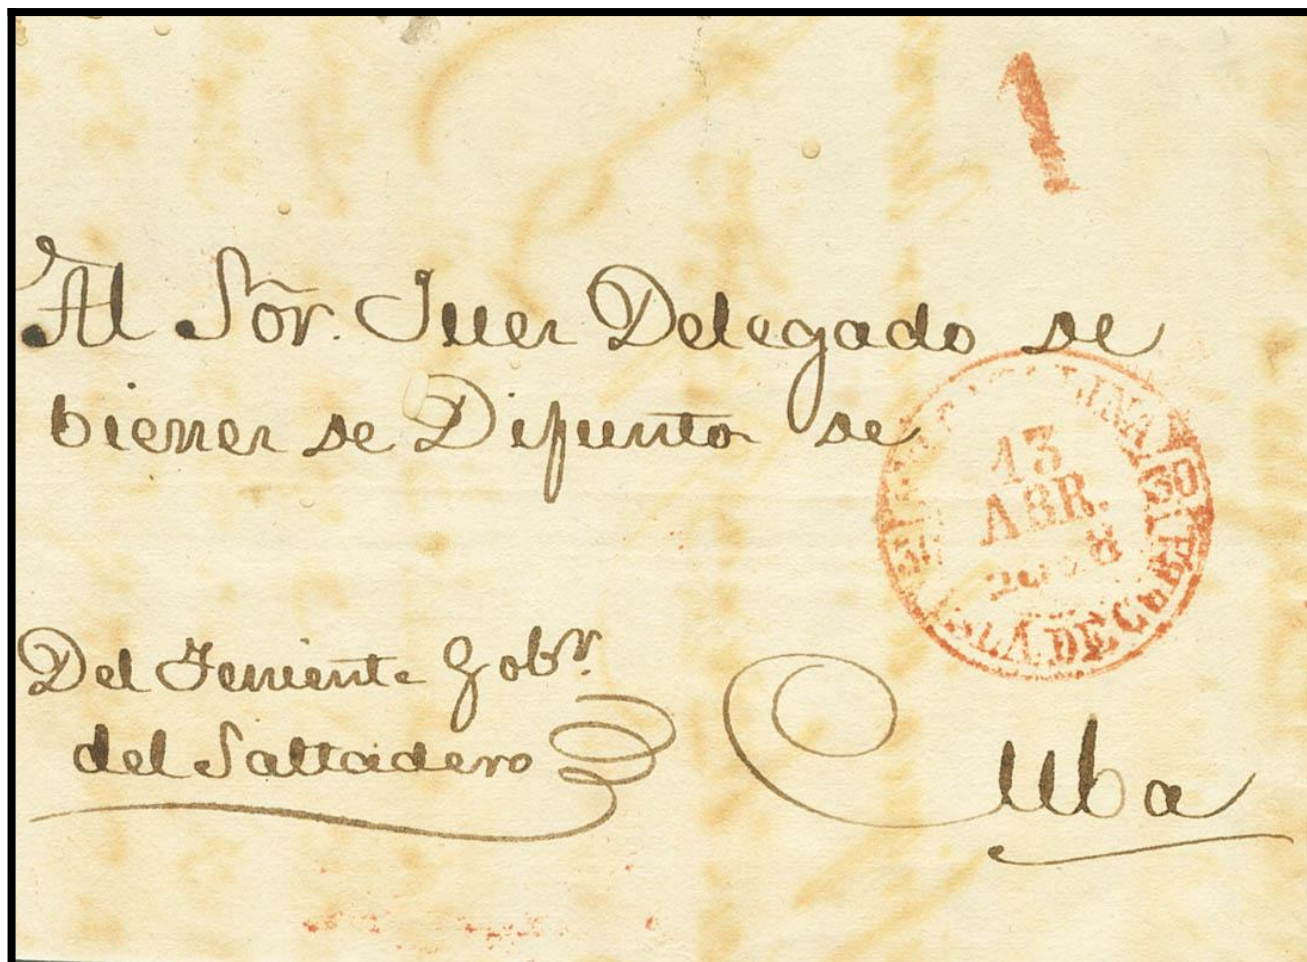 1
Al Sõr. Juez Delegado de
bienes de Difuntos de
13
ABR.
30
ISLA DE CUBA
Del Teniente Gobr.
del Saltadero
Cuba